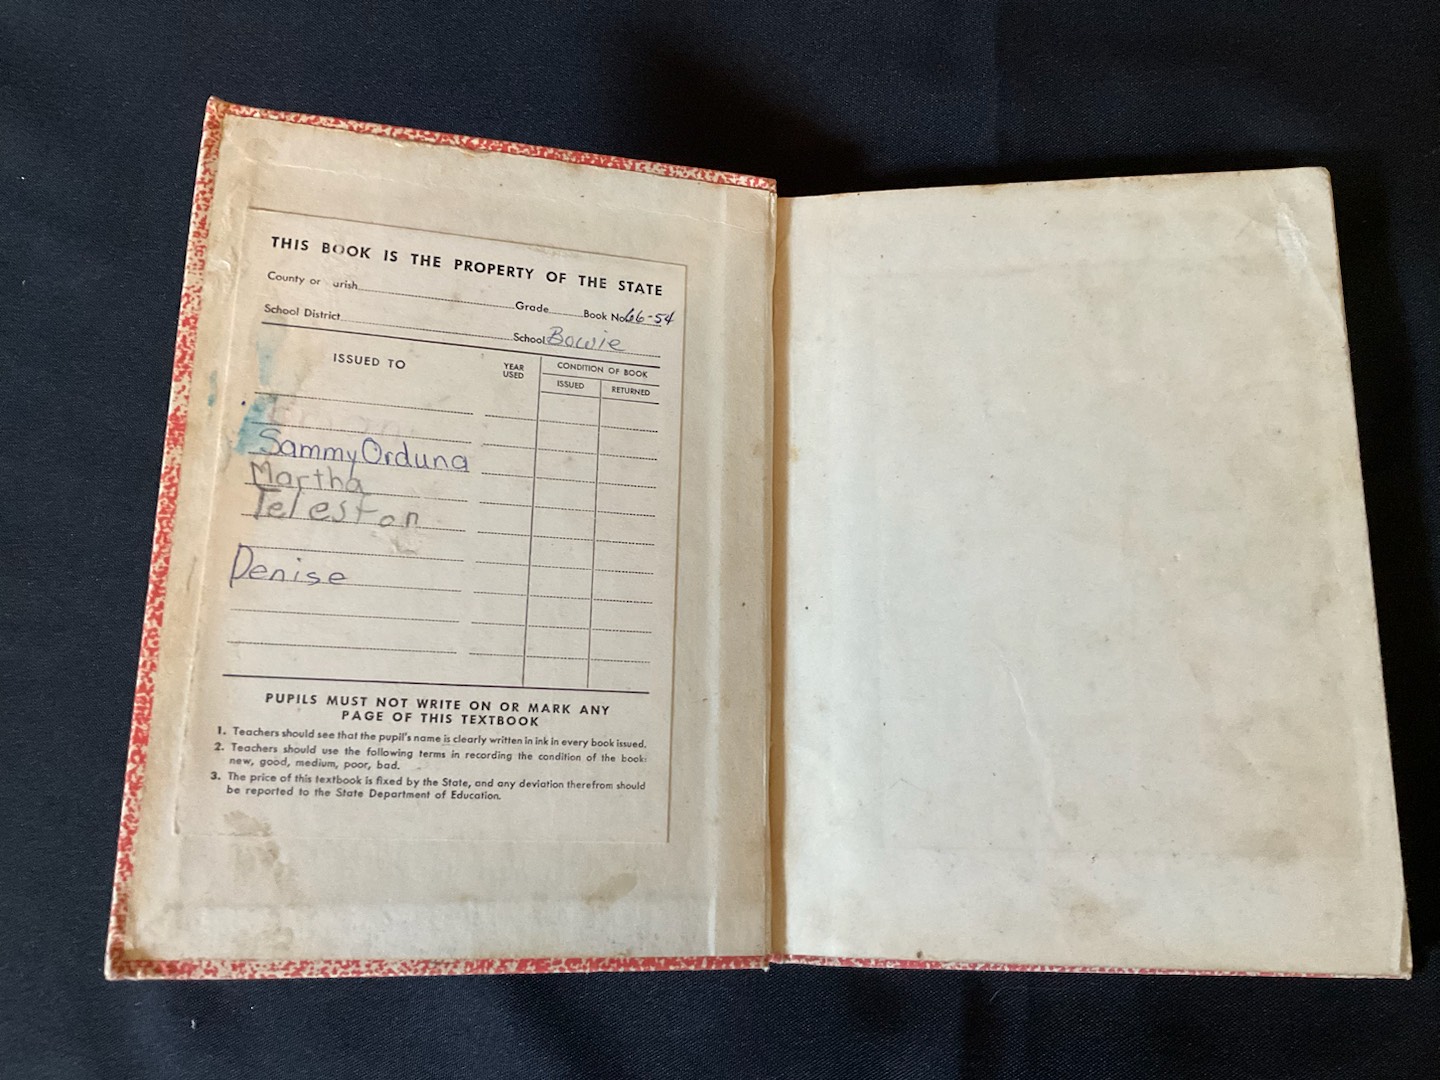 THIS BOOK IS THE PROPERTY OF THE STATE
County or arish
Grade Book No. 66-54
School District
School Bowie
ISSUED TO
YEAR USED
CONDITION OF BOOK
ISSUED
RETURNED
Sammy Orduna
Martha
Teleston
Denise
PUPILS MUST NOT WRITE ON OR MARK ANY
PAGE OF THIS TEXTBOOK
1. Teachers should see that the pupil's name is clearly written in ink in every book issued.
2. Teachers should use the following terms in recording the condition of the book:
new, good, medium, poor, bad.
3. The price of this textbook is fixed by the State, and any deviation therefrom should
be reported to the State Department of Education.